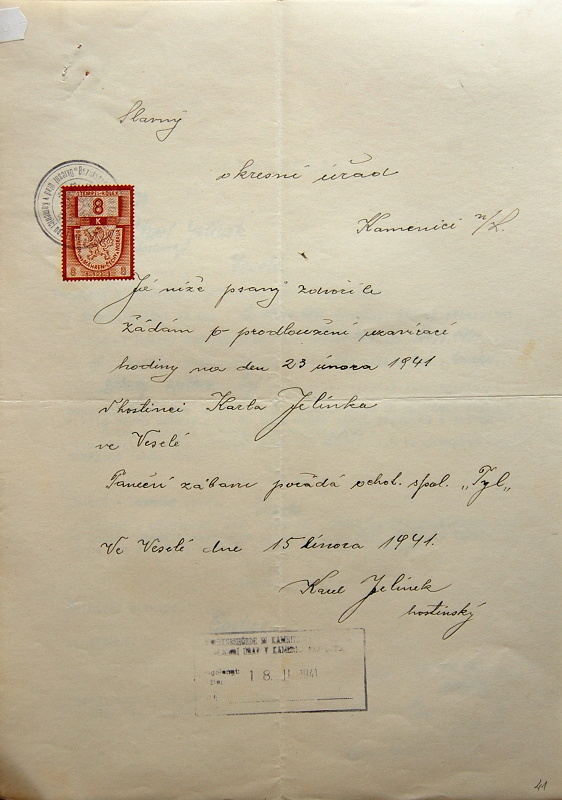 Slavný
okresní úřad
Kamenici n/L.
8
K
8 8
Já níže psaný zdvořile
žádám o prodloužení uzavírací
hodiny na den 23 února 1941
v hostinci Karla Jelínka
ve Veselé
Taneční zábavu pořádá ochot. spol. „Tyl„
Ve Veselé dne 15 února 1941.
Karel Jelínek
hostinský
18. II. 1941
41